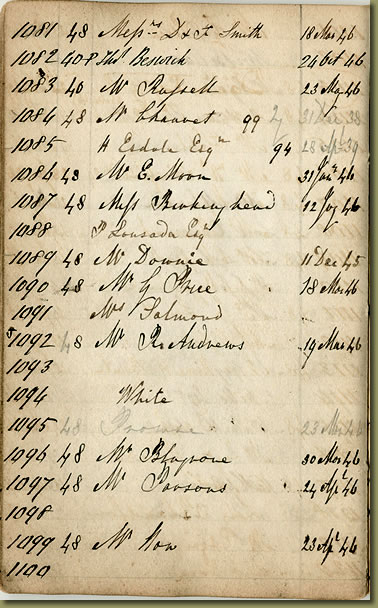 1081 48 Messrs D & F Smith 18 Mar 46
1082 408 Thos Berwick 24 Oct 46
1083 40 Mr Russell 23 May 46
1084 48 Mr Chauvet 99 31 Dec 38
1085 H Esdale Esqr 94 28 39
1086 48 Mr E. Moon 31 Jany 46
1087 48 Miss Buckinghend 12 46
1088 P Lousada Esqr
1089 48 Mr Downie 11 Dec 45
1090 48 Mr G Price 18 Mar 46
1091 Mrs Salmond
1092 48 Mr R. Andrews 19 Mar 46
1093
1094 White
1095 48 Prowse 23 46
1096 48 Mr Blagrove 30 Mar 46
1097 48 Mr Parsons 24 Apl 46
1098
1099 48 Mr How 23 Apl 46
1100